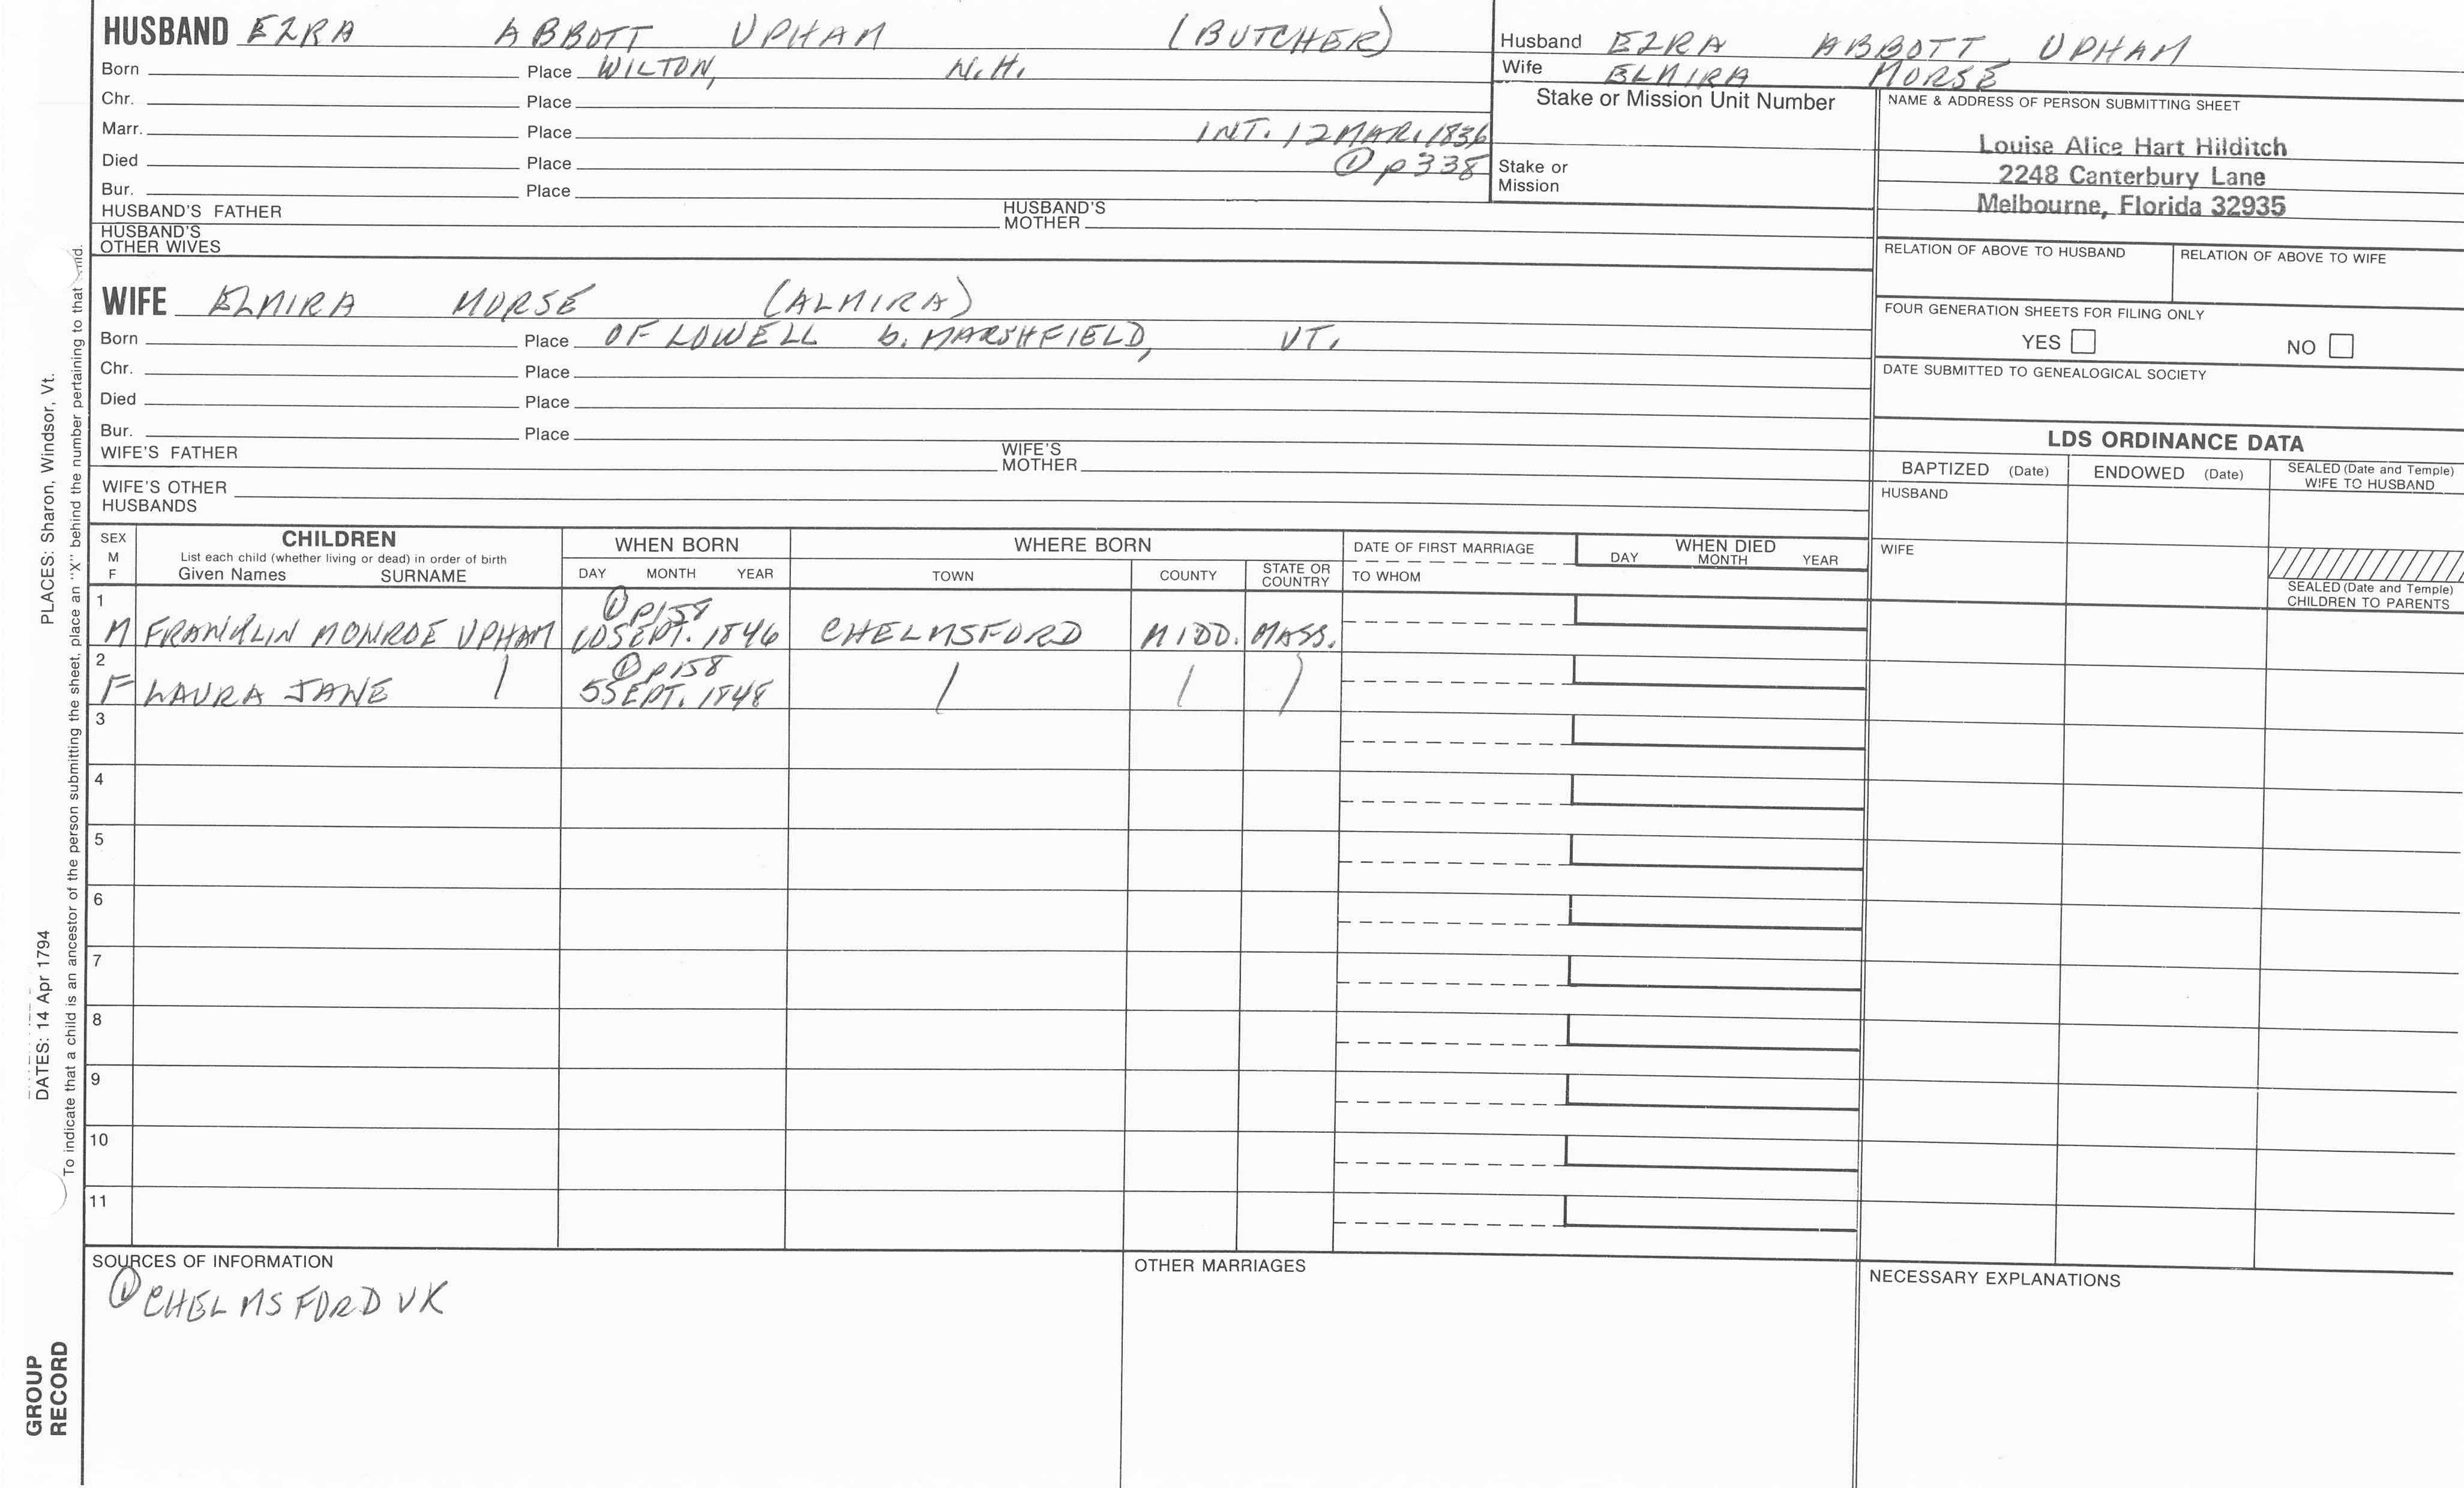 HUSBAND EZRA ABBOTT UPHAM (BUTCHER)
Born Place WILTON, N.H.
Chr. Place
Marr. Place INT. 12 MAR. 1836
Died Place ① p338
Bur. Place
HUSBAND'S FATHER HUSBAND'S MOTHER
HUSBAND'S OTHER WIVES
WIFE ELMIRA MORSE (ALMIRA)
Born Place OF LOWELL b. MARSHFIELD, VT.
Chr. Place
Died Place
Bur. Place
WIFE'S FATHER WIFE'S MOTHER
WIFE'S OTHER HUSBANDS
Husband EZRA ABBOTT UPHAM
Wife ELMIRA MORSE
Stake or Mission Unit Number
Stake or Mission
NAME & ADDRESS OF PERSON SUBMITTING SHEET
Louise Alice Hart Hilditch
2248 Canterbury Lane
Melbourne, Florida 32935
RELATION OF ABOVE TO HUSBAND RELATION OF ABOVE TO WIFE
FOUR GENERATION SHEETS FOR FILING ONLY
YES NO
DATE SUBMITTED TO GENEALOGICAL SOCIETY
LDS ORDINANCE DATA
BAPTIZED (Date) ENDOWED (Date) SEALED (Date and Temple) WIFE TO HUSBAND
HUSBAND
WIFE
SEALED (Date and Temple) CHILDREN TO PARENTS
SEX M F
CHILDREN
List each child (whether living or dead) in order of birth
Given Names SURNAME
WHEN BORN
DAY MONTH YEAR
WHERE BORN
TOWN COUNTY STATE OR COUNTRY
DATE OF FIRST MARRIAGE
TO WHOM
WHEN DIED
DAY MONTH YEAR
1 ① P158
M FRANKLIN MONROE UPHAM 10 SEPT. 1846 CHELMSFORD MIDD. MASS.
2 ① P158
F LAURA JANE 5 SEPT. 1848
3
4
5
6
7
8
9
10
11
SOURCES OF INFORMATION
① CHELMSFORD VR
OTHER MARRIAGES
NECESSARY EXPLANATIONS
PLACES: Sharon, Windsor, Vt.
DATES: 14 Apr 1794
To indicate that a child is an ancestor of the person submitting the sheet, place an "X" behind the number pertaining to that
GROUP RECORD